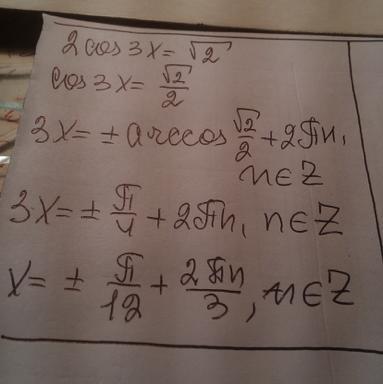 2cos3x=√2
cos3x=√2/2
3x=±arccos√2/2+2πn,
n∈Z
3x=±π/4+2πn, n∈Z
x=±π/12+2πn/3, n∈Z